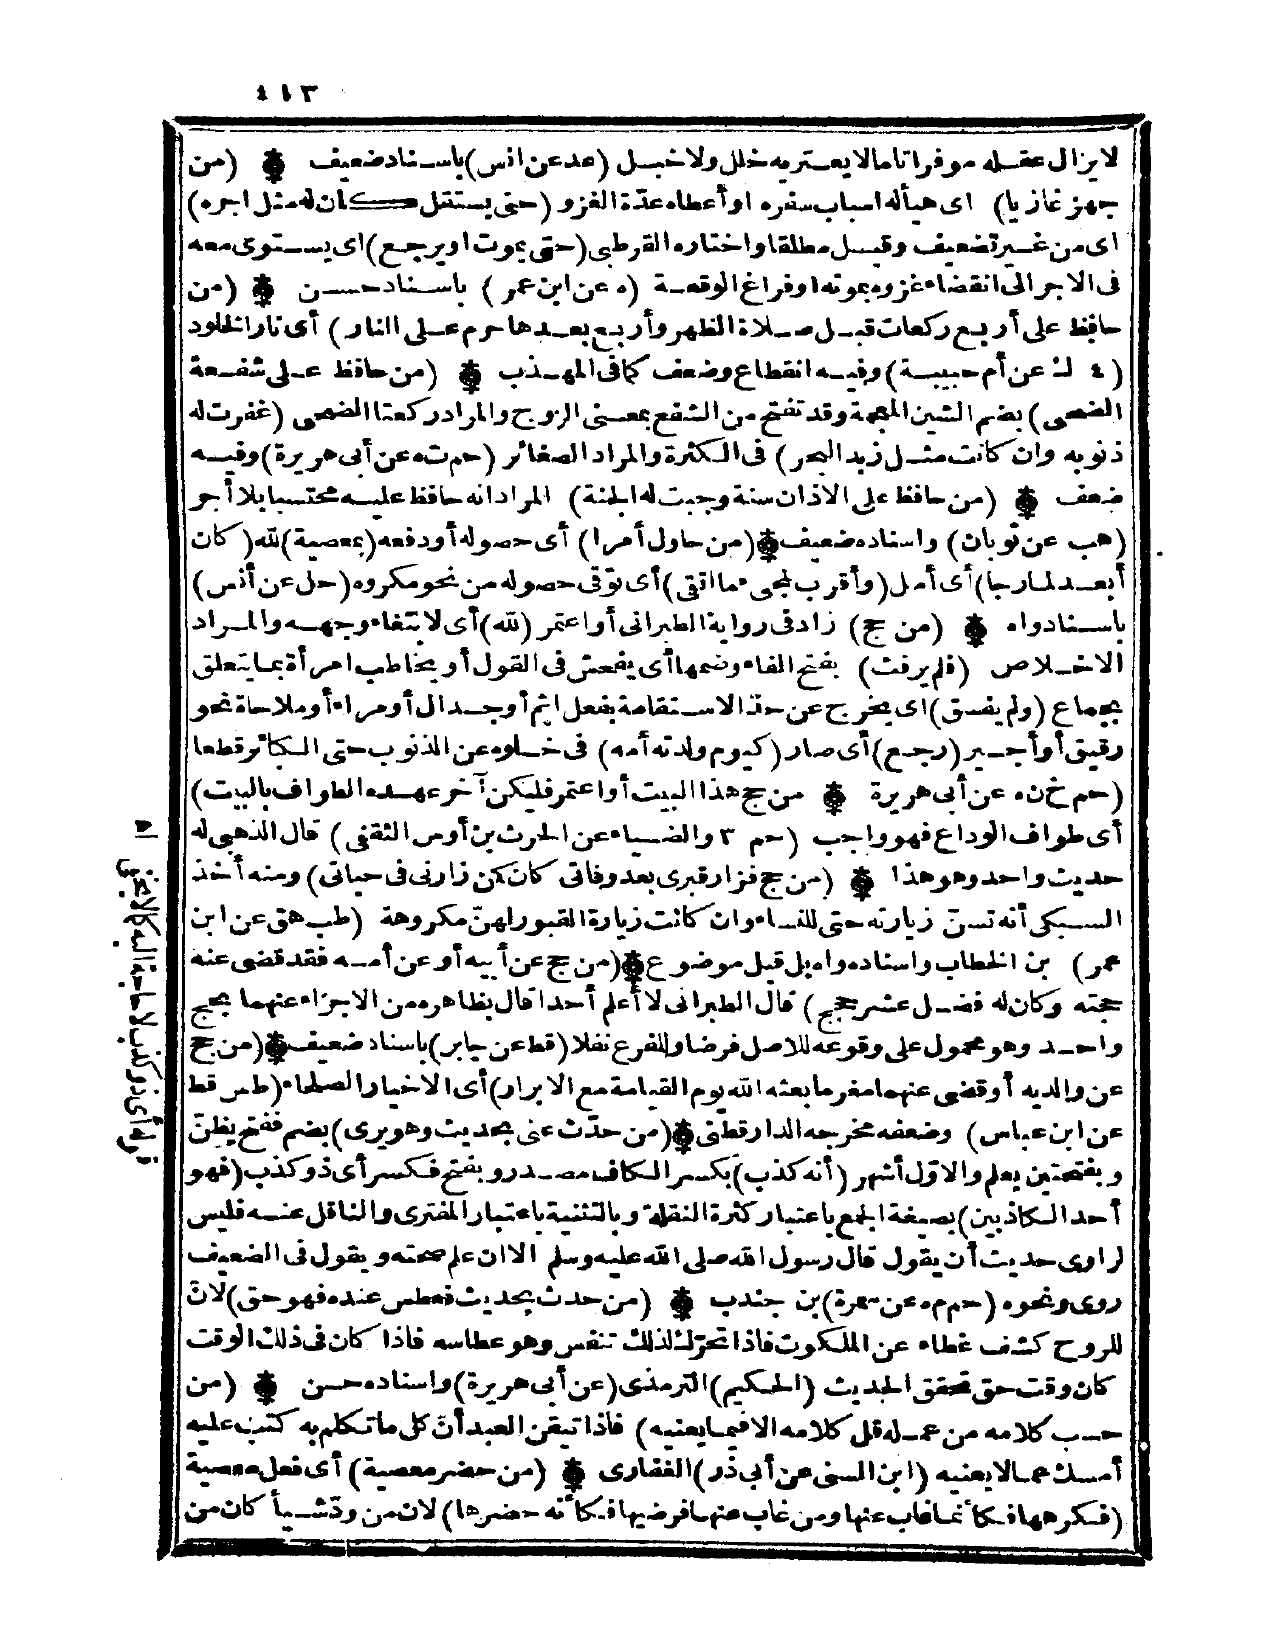 ٤١٣
لا يزال عقله موفرا تاما لا يعتريه خلل ولا خبل (عد عن انس) باسناد ضعيف ۞ (من
جهز غازيا) اى هيأ له اسباب سفره او أعطاه عدّة الغزو (حتى يستقل كان له مثل اجره)
اى من غير تضعيف وقيل مطلقا واختاره القرطبى (حتى يموت او يرجع) اى يستوى معه
فى الاجر الى انقضاء غزوه بموته او فراغ الوقعة (ه عن ابن عمر) باسناد حسن ۞ (من
حافظ على أربع ركعات قبل صلاة الظهر وأربع بعدها حرم على النار) أى نار الخلود
(٤ ك عن أم حبيبة) وفيه انقطاع وضعف كما فى المهذب ۞ (من حافظ على شفعة
الضحى) بضم الشين المعجمة وقد تفتح من الشفع بمعنى الزوج والمراد ركعتا الضحى (غفرت له
ذنوبه وان كانت مثل زبد البحر) فى الكثرة والمراد الصغائر (حم ت ه عن أبى هريرة) وفيه
ضعف ۞ (من حافظ على الاذان سنة وجبت له الجنة) المراد انه حافظ عليه محتسبا بلا أجر
(هب عن ثوبان) واسناده ضعيف ۞ (من حاول أمرا) أى حصوله أو دفعه (بمعصية) لله (كان
أبعد لما رجا) أى أمل (وأقرب لمجىء ما اتقى) أى توقى حصوله من نحو مكروه (حل عن أنس)
باسناد واه ۞ (من حج) زاد فى رواية الطبرانى أو اعتمر (لله) أى لابتغاء وجهه والمراد
الاخلاص (فلم يرفث) بفتح الفاء وضمها أى يفحش فى القول أو يخاطب امرأة بما يتعلق
بجماع (ولم يفسق) اى يخرج عن حدّ الاستقامة بفعل اثم أو جدال أو مراء أو ملاحاة نحو
رفيق أو أجير (رجع) أى صار (كيوم ولدته أمه) فى خلوه عن الذنوب حتى الكبائر قطعا
(حم خ ن ه عن أبى هريرة ۞ من حج هذا البيت أو اعتمر فليكن آخر عهده الطواف بالبيت)
أى طواف الوداع فهو واجب (حم ٣ والضياء عن الحرث بن أوس الثقفى) قال الذهبى له
حديث واحد وهو هذا ۞ (من حج فزار قبرى بعد وفاتى كان كمن زارنى فى حياتى) ومنه أخذ
السبكى أنه تسنّ زيارته حتى للنساء وان كانت زيارة القبور لهنّ مكروهة (طب هق عن ابن
عمر) بن الخطاب واسناده واه بل قيل موضوع ۞ (من حج عن أبيه أو عن أمه فقد قضى عنه
حجته وكان له فضل عشر حجج) قال الطبرانى لا أعلم أحدا قال بظاهره من الاجزاء عنهما بحج
واحد وهو محمول على وقوعه للاصل فرضا وللفرع نفلا (قط عن جابر) باسناد ضعيف ۞ (من حج
عن والديه أو قضى عنهما مغرما بعثه الله يوم القيامة مع الابرار) أى الاخيار الصلحاء (طس قط
عن ابن عباس) وضعفه مخرجه الدارقطنى ۞ (من حدّث عنى بحديث وهو يرى) بضم ففتح يظنّ
وبفتحتين يعلم والاوّل أشهر (أنه كذب) بكسر الكاف مصدر وبفتح فكسر أى ذو كذب (فهو
أحد الكاذبين) بصيغة الجمع باعتبار كثرة النقلة وبالتثنية باعتبار المفترى والناقل عنه فليس
لراوى حديث أن يقول قال رسول الله صلى الله عليه وسلم الا ان علم صحته ويقول فى الضعيف
روى ونحوه (حم م ه عن سمرة) بن جندب ۞ (من حدث بحديث فعطس عنده فهو حق) لانّ
للروح كشف غطاء عن الملكوت فاذا تحرّك لذلك تنفس وهو عطاسه فاذا كان فى ذلك الوقت
كان وقت حق تحقق الحديث (الحكيم) الترمذى (عن أبى هريرة) واسناده حسن ۞ (من
حسب كلامه من عمله قل كلامه الا فيما يعنيه) فاذا تيقن العبد أنّ كل ما تكلم به كتب عليه
أمسك عما لا يعنيه (ابن السنى عن أبى ذر) الغفارى ۞ (من حضر معصية) أى فعل معصية
(فكرهها فكأنما غاب عنها ومن غاب عنها فرضيها فكأنه حضرها) لان من ودّ شيأ كان من